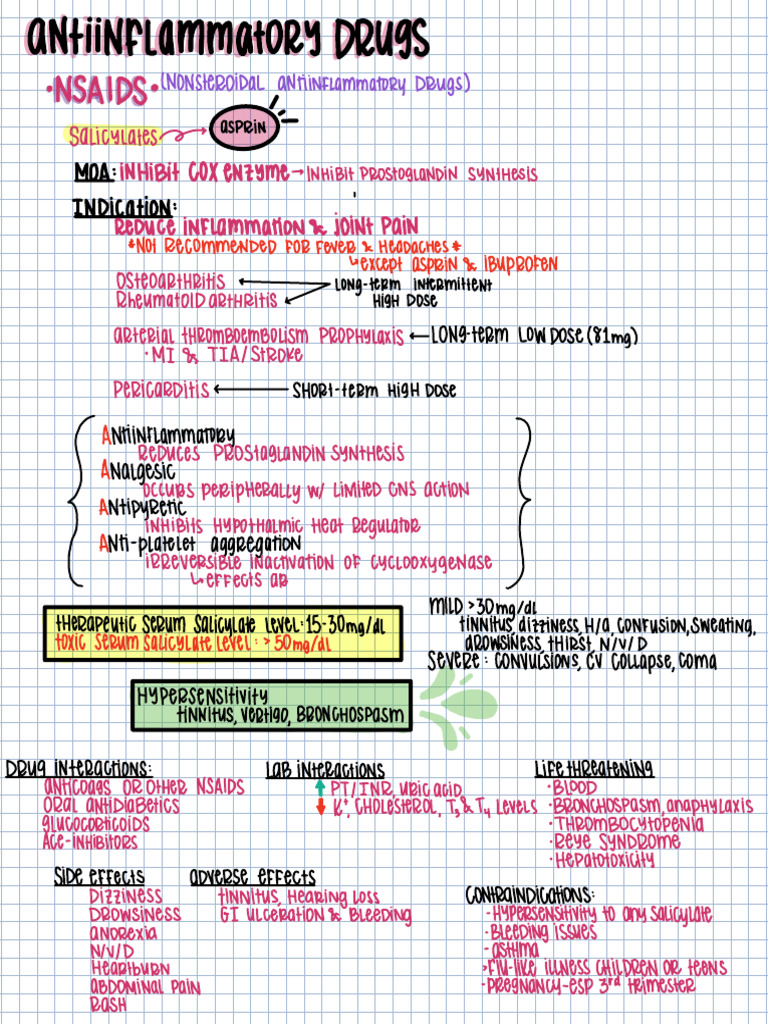 ANTIINFLAMMATORY DRUGS
•NSAIDS• (NONSTEROIDAL ANTIINFLAMMATORY DRUGS)
SALICYLATES ASPRIN
MOA: INHIBIT COX ENZYME → INHIBIT PROSTOGLANDIN SYNTHESIS
INDICATION:
REDUCE INFLAMMATION & JOINT PAIN
*NOT RECOMMENDED FOR FEVER & HEADACHES*
↳EXCEPT ASPRIN & IBUPROFEN
OSTEOARTHRITIS ← LONG-TERM INTERMITTENT
RHEUMATOID ARTHRITIS ← HIGH DOSE
ARTERIAL THROMBOEMBOLISM PROPHYLAXIS ← LONG-TERM LOW DOSE (81mg)
•MI & TIA/STROKE
PERICARDITIS ← SHORT-TERM HIGH DOSE
ANTIINFLAMMATORY
REDUCES PROSTAGLANDIN SYNTHESIS
ANALGESIC
OCCURS PERIPHERALLY W/ LIMITED CNS ACTION
ANTIPYRETIC
INHIBITS HYPOTHALMIC HEAT REGULATOR
ANTI-PLATELET AGGREGATION
IRREVERSIBLE INACTIVATION OF CYCLOOXYGENASE
↳EFFECTS AR
THERAPEUTIC SERUM SALICYLATE LEVEL: 15-30mg/dL
TOXIC SERUM SALICYLATE LEVEL: > 50mg/dL
MILD >30mg/dL
TINNITUS, DIZZINESS, H/A, CONFUSION, SWEATING,
DROWSINESS, THIRST, N/V/D
SEVERE: CONVULSIONS, CV COLLAPSE, COMA
HYPERSENSITIVITY
TINNITUS, VERTIGO, BRONCHOSPASM
DRUG INTERACTIONS:
ANTICOAGS OR OTHER NSAIDS
ORAL ANTIDIABETICS
GLUCOCORTICOIDS
ACE-INHIBITORS
LAB INTERACTIONS
↑ PT/INR, URIC ACID
↓ K⁺, CHOLESTEROL, T₃ & T₄ LEVELS
LIFE THREATENING
•BLOOD
•BRONCHOSPASM, ANAPHYLAXIS
•THROMBOCYTOPENIA
•REYE SYNDROME
•HEPATOTOXICITY
SIDE EFFECTS
DIZZINESS
DROWSINESS
ANOREXIA
N/V/D
HEARTBURN
ABDOMINAL PAIN
RASH
ADVERSE EFFECTS
TINNITUS, HEARING LOSS
GI ULCERATION & BLEEDING
CONTRAINDICATIONS:
-HYPERSENSITIVITY TO ANY SALICYLATE
-BLEEDING ISSUES
-ASTHMA
>FLU-LIKE ILLNESS CHILDREN OR TEENS
-PREGNANCY-ESP 3rd TRIMESTER